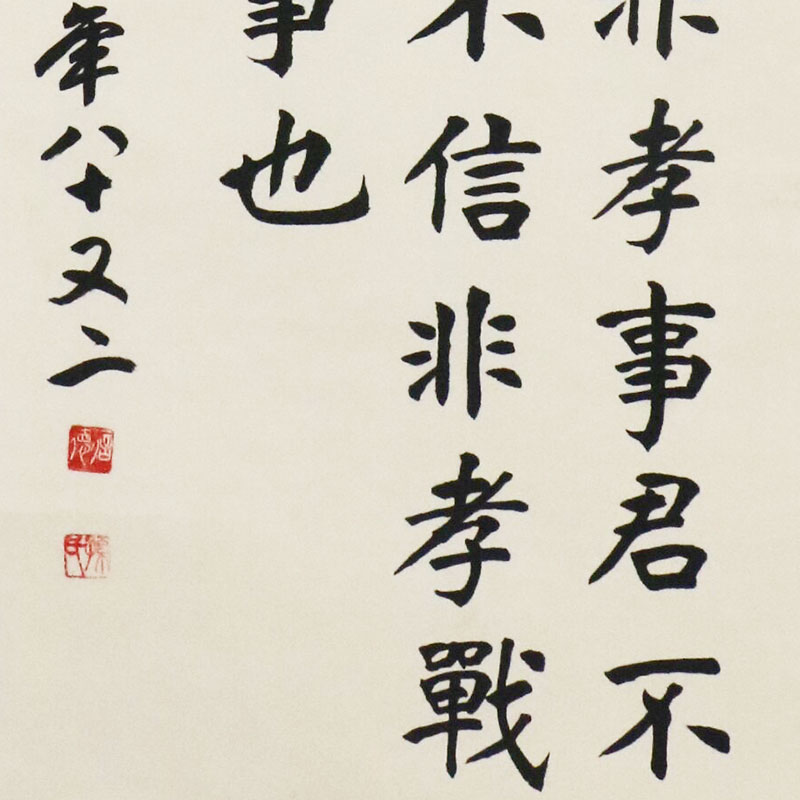 非孝事君不
不信非孝戰
事也
年八十又二